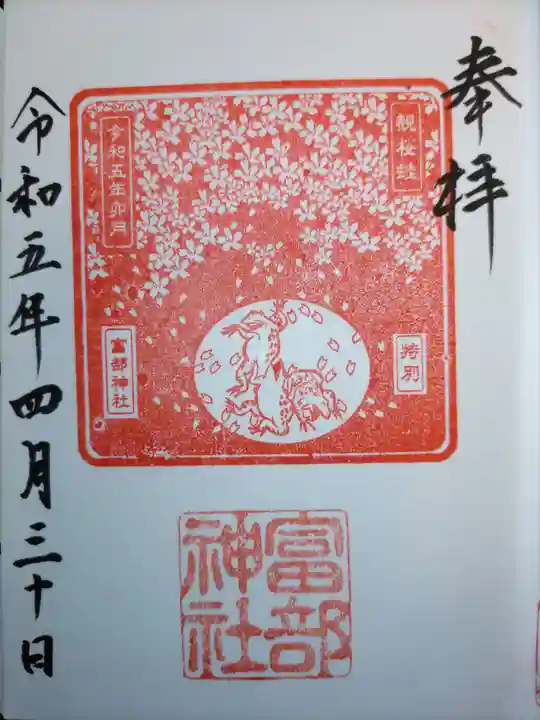 奉拝
観桜蛙
令和五年卯月
特別
富部神社
富部
神社
令和五年四月三十日